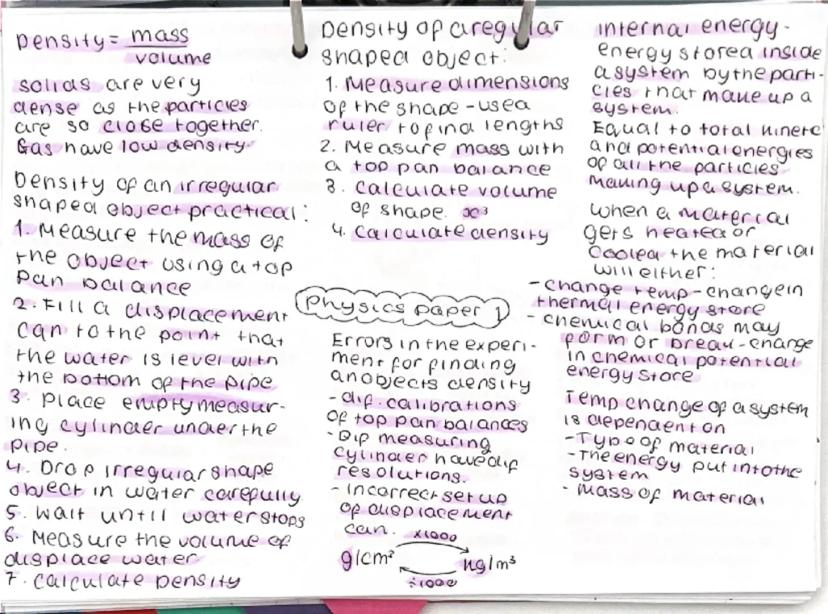 Density = mass
volume
solids are very
dense as the particles
are so close together.
Gas have low density.
Density of an irregular
shaped object practical:
1. Measure the mass of
the object using a top
pan balance
2. Fill a displacement
can to the point that
the water is level with
the bottom of the pipe
3. Place empty measur-
ing cylinder under the
pipe.
4. Drop irregular shape
object in water carefully
5. Wait until water stops
6. Measure the volume of
displace water
7. Calculate Density
Density of a regular
shaped object:
1. Measure dimensions
of the shape - use a
ruler to find lengths
2. Measure mass with
a top pan balance
3. Calculate volume
of shape. x³
4. Calculate density
Physics paper 1
Errors in the experi-
ment for finding
an objects density
- dif. calibrations
of top pan balances
- Dif measuring
cylinder have dif
resolutions.
- Incorrect set up
of displacement
can.
x1000
g/cm³ kg/m³
÷1000
internal energy -
energy stored inside
a system by the parti-
cles that make up a
system.
Equal to total kinetc
and potential energies
of all the particles
making up a system.
when a material
gets heated or
cooled the material
will either:
- change temp - change in
thermal energy store
- chemical bonds may
form or break - change
in chemical potential
energy store
Temp change of a system
is dependent on
- Type of material
- The energy put into the
system
- Mass of material